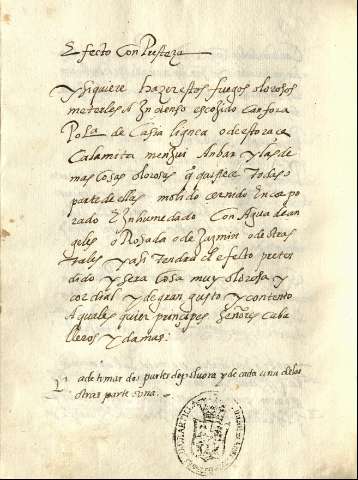 Efecto con Presteza
ysiquiere hazer estos fuegos olorosos
meterles A Inçienso escojido canfora
Polbo de Casia lignea o de estoraca
Calamita menjui Anbar y las de
mas Cosas olorosas q quisiere todas o
parte de ellas molido cernido Encorpo
rado E Inhumedado Con Agua de an
geles o Rosada o de Jazmin o de otras
tales y asi tendra el efeto preten
dido y sera Cosa muy olorosa y
cordial y de gran gusto y contento
A quales quier prinçipes Señores caba
lleros y damas:
ade tomar dos partes de poluora y de cada una delas
otras parte y una.